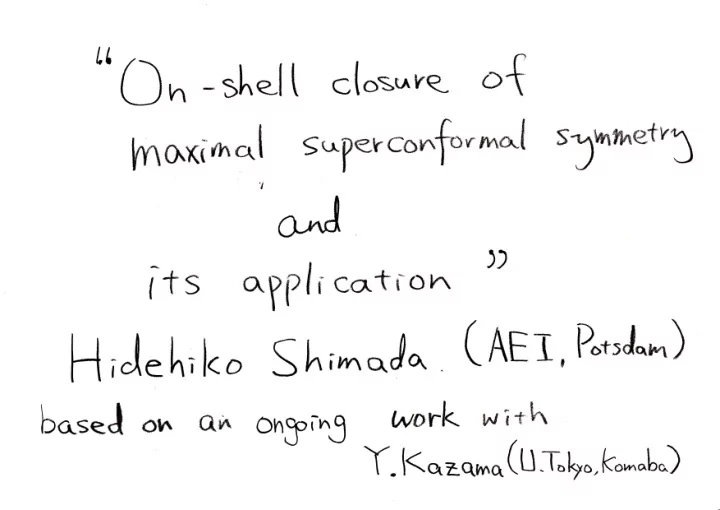 “On-shell closure of
maximal superconformal symmetry
and
its application”
Hidehiko Shimada. (AEI, Potsdam)
based on an ongoing work with
Y. Kazama (U. Tokyo, Komaba)